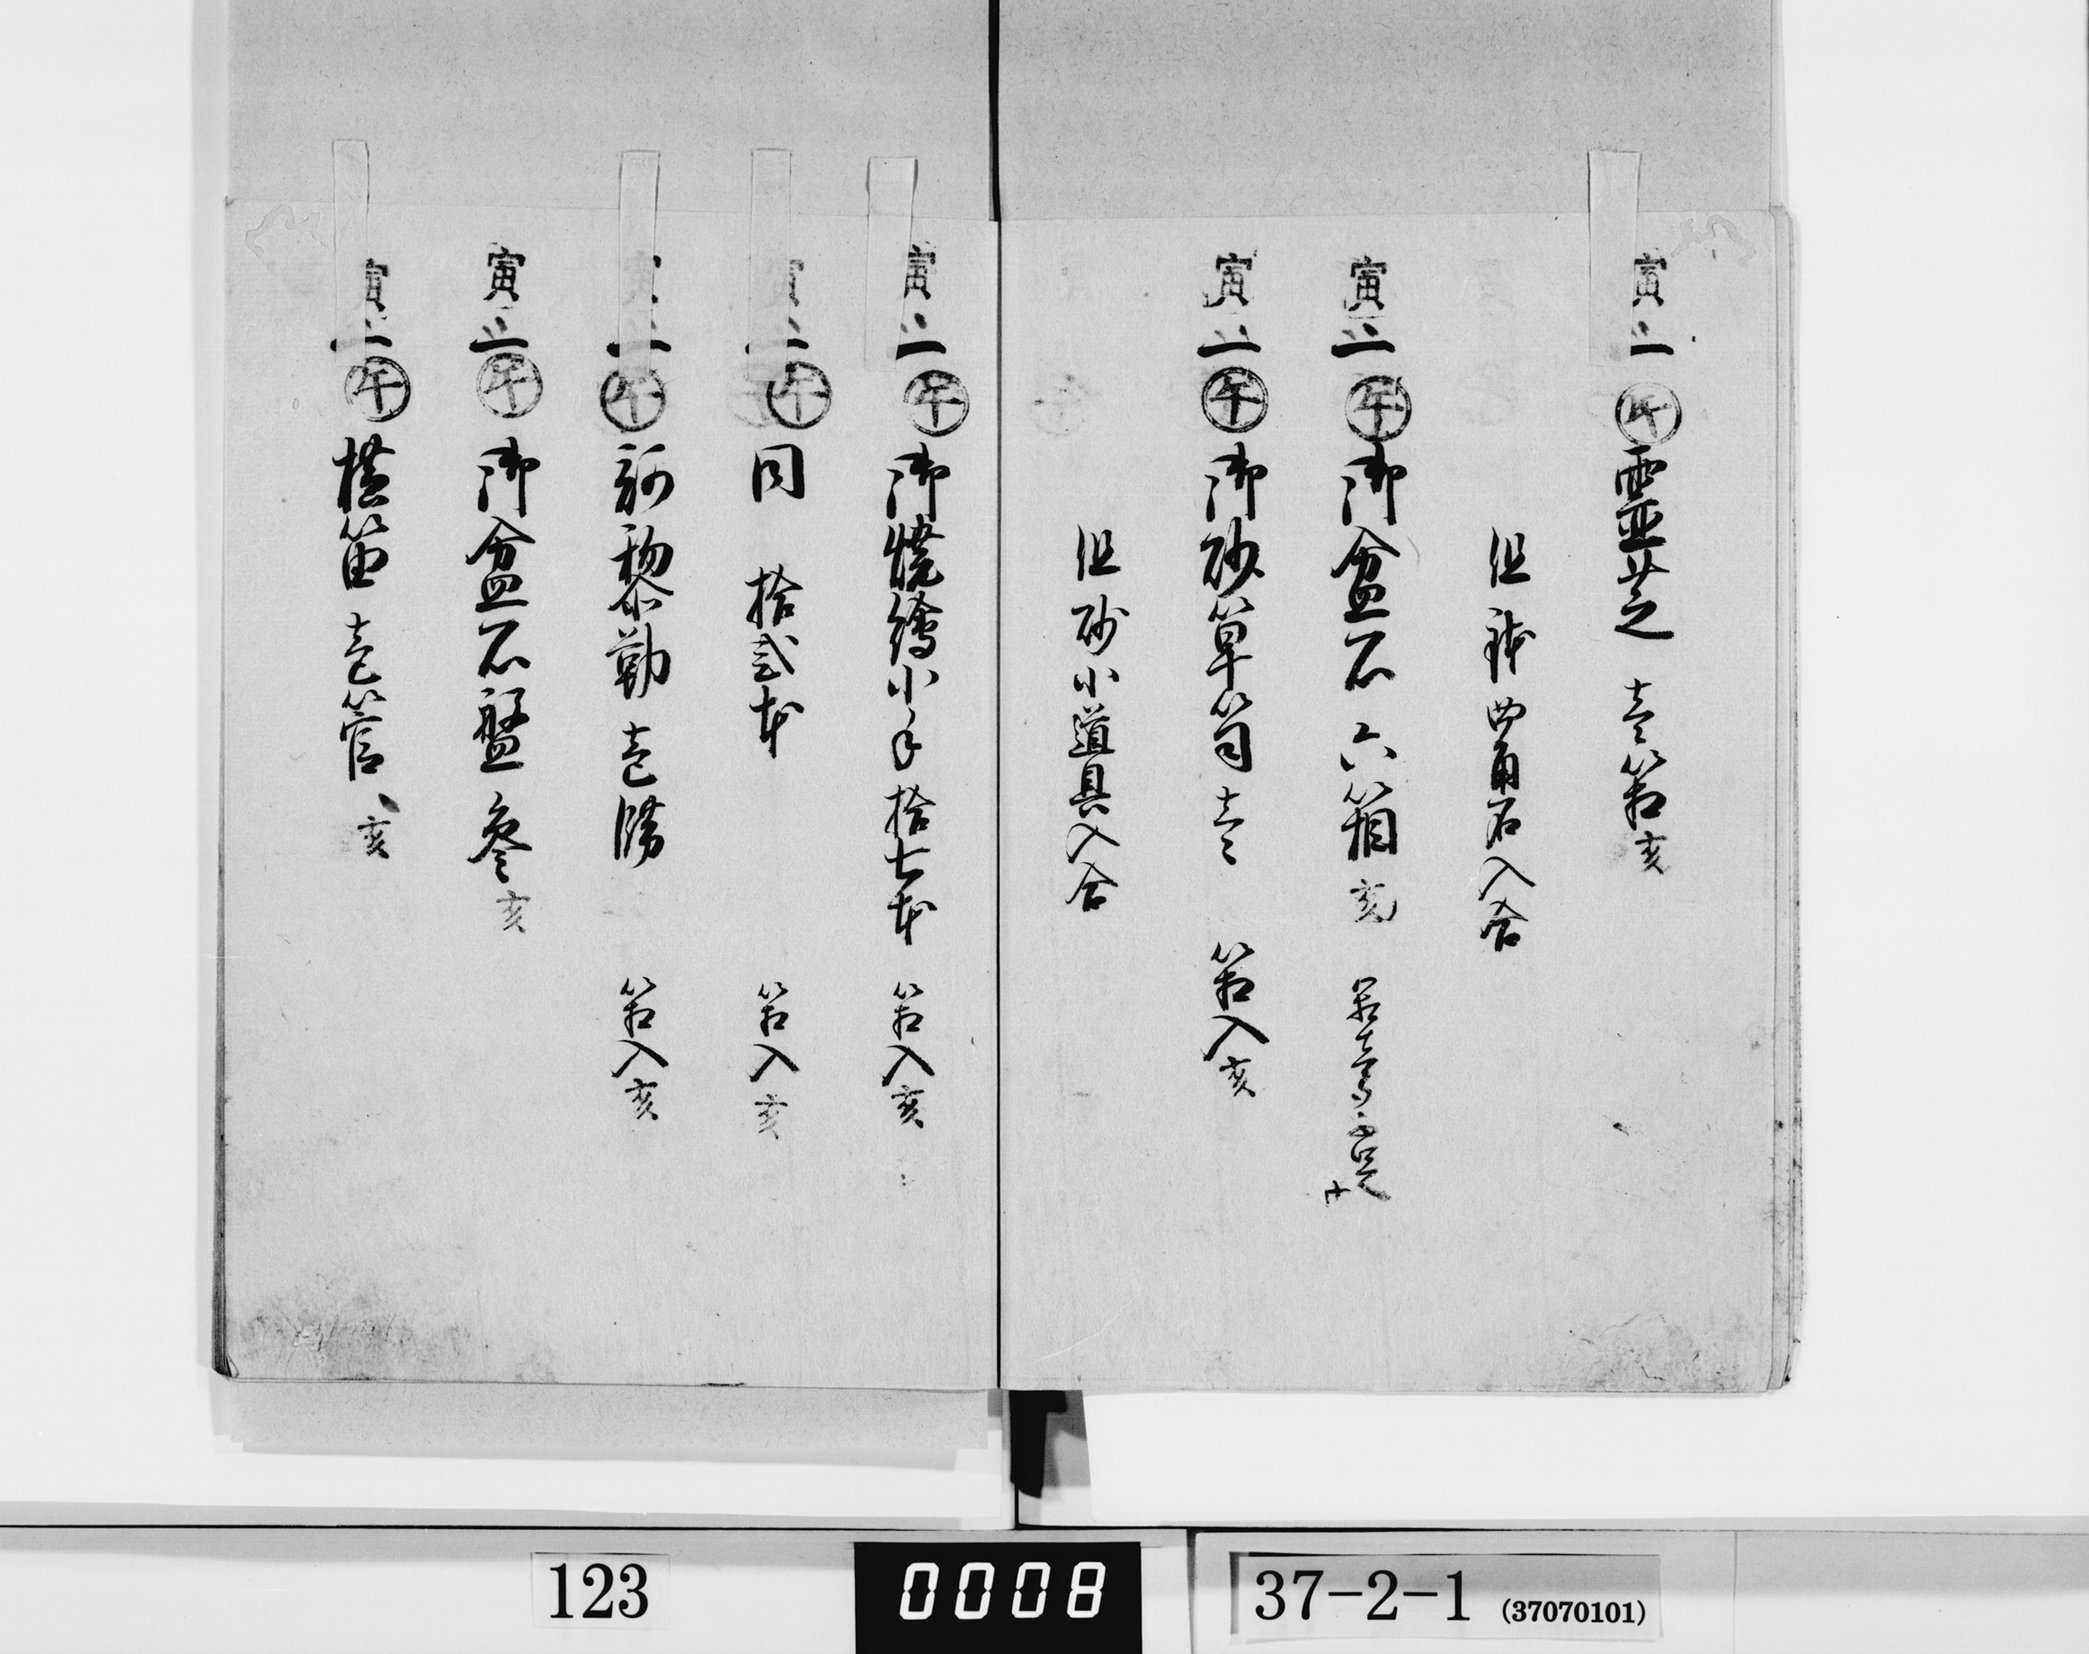 寅 二 午 霊芝 壱箱 亥
但 珠 四角石入合
寅 二 午 御盆石 六箱 亥
寅 二 午 御砂箪笥 壱 箱入 亥
但 砂小道具入合
寅 二 午 御焼絵小手 拾七本 箱入 亥
寅 二 午 同 拾弐本 箱入 亥
寅 二 午 訶黎勒 壱 箱入 亥
寅 二 午 御盆石盤 参 亥
寅 二 午 横笛 壱管 亥
123
0008
37-2-1 (37070101)